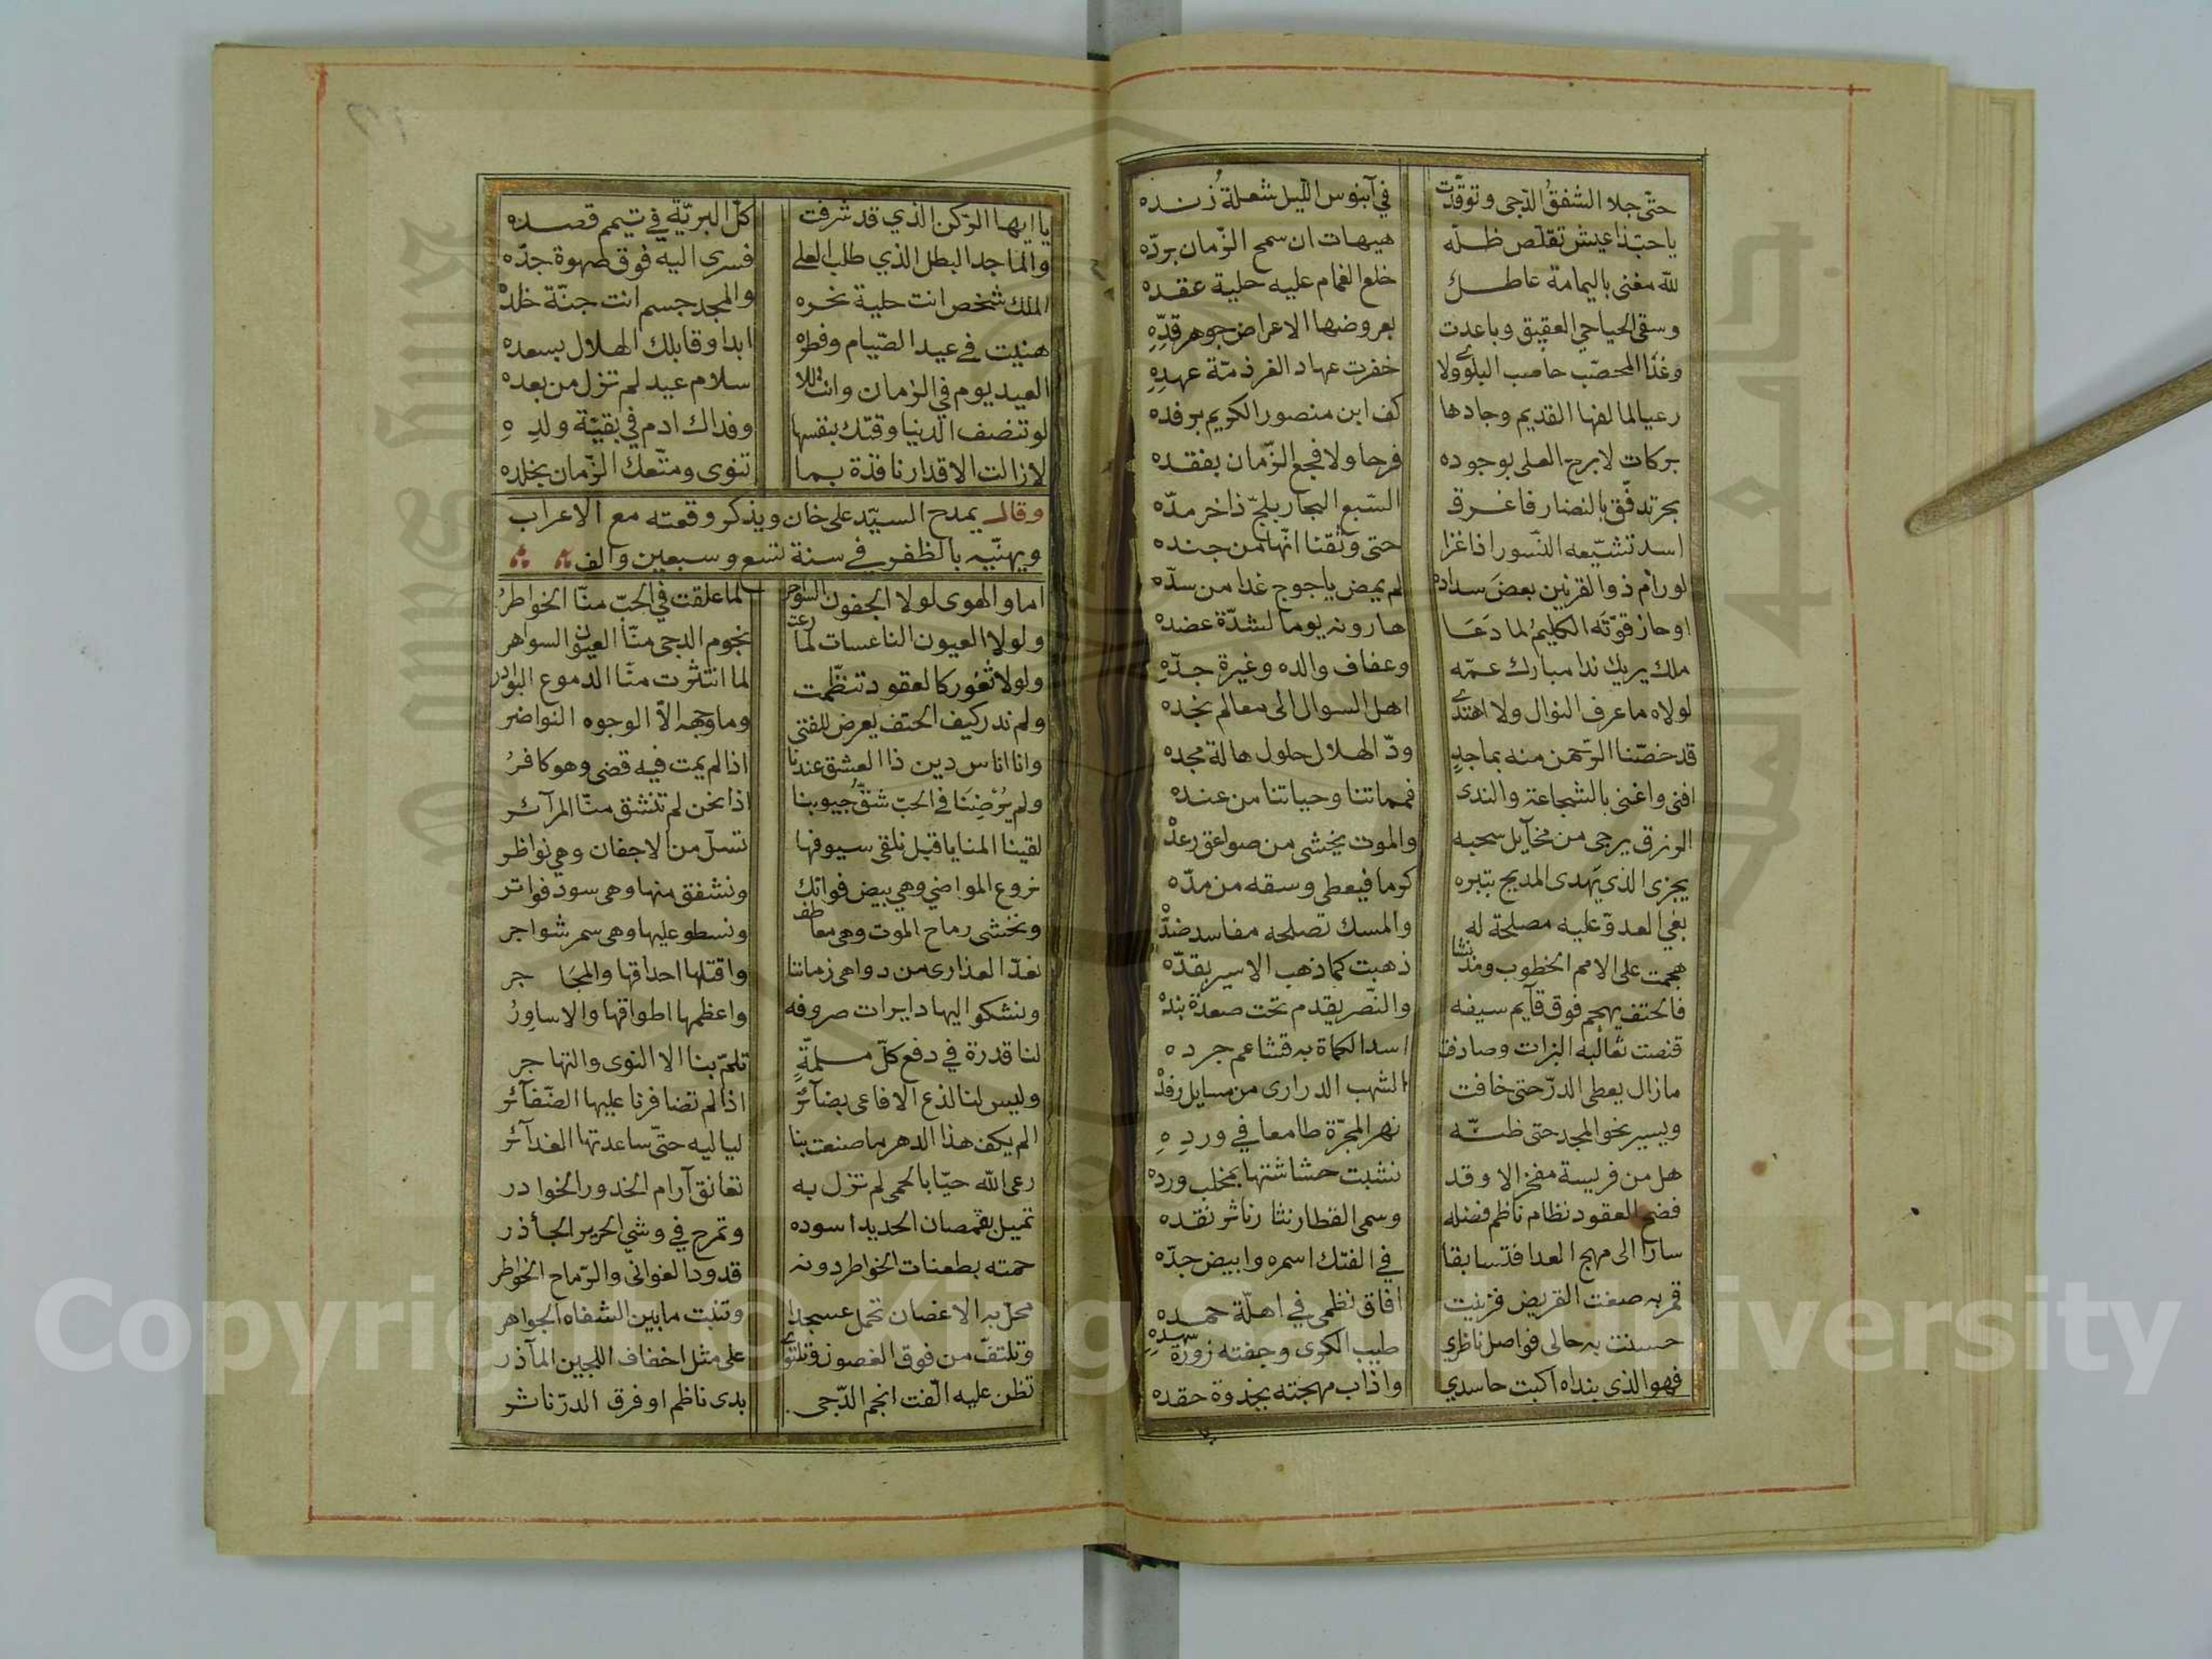 حتّى جلا الشفقُ الدّجى وتوقّدت في آبنوس اللّيل شعلة زنده
يا حبّذا عيش تقلّص ظلّه هيهات ان سمح الزّمان بردّه
لله مغنى باليمامة عاطل خلع الغمام عليه حلية عقده
وسقى الحيا حي العقيق وباعدت بعروضها الاعراض جوهر قدّه
وغذا المحصّب حاصب البلوى ولا خفرت عهاد الغر ذمّة عهده
رعيا لما لفها القديم وجادها كف ابن منصور الكريم برفده
بركات لا برح العلى بوجوده فرحا ولا فجع الزّمان بفقده
بحر تدفّق بالنضار فاغرق السّبع البحار بلجّ ذاخر مدّه
اسد تشيّعه النّسور اذا غزا حتى وثقنا انّها من جنده
لو رام ذو القرنين بعض سداده لم يمض ياجوج غدا من سدّه
او حاز قوّته الكليمُ لما دَعَا هارونه يوما لشدّة عضده
ملك يريك ندا مبارك عمّه وعفاف والده وغيرة جدّه
لولاه ما عرف النوال ولا اهتدى اهل السوال الى معالم نجده
قد خصّنا الرّحمن منه بماجدٍ ودّ الهلال حلول هالة مجده
افنى واغنى بالشجاعة والندى فمماتنا وحياتنا من عنده
الرزق يرجى من مخايل سحبه والموت يخشى من صواعق رعده
يجزى الذي يهدى المديح بتبره كرما فيعطي وسقه من مدّه
بغي العدوّ عليه مصلحة له والمسك تصلحه مفاسد ضدّه
هجمت على الامم الخطوب ومذ نشا ذهبت كما ذهب الاسير بقدّه
فالحتف يهجم فوق قايم سيفه والنّصر يقدم تحت صعدة بنده
قنصت ثعالبه البزات وصادفت اسد الكماة به قشاعم جرده
ما زال يعطى الدرّ حتى خافت الشهب الدرارى من مسايل رفده
ويسير نحو المجد حتى ظنّه نهر المجرّة طامعا في ورده
هل من فريسة مفخر الا وقد نشبت حشاشتها بمخلب ورده
فضح العقود نظام ناظم فضله وسمى القطار نثار ناثر نقده
سارا الى مهج العدا فتسابقا في الفتك اسمره وابيض حدّه
قمر به صغت القريض فزينت افاق نظمى في اهلّة حمده
حسنت به حالى فواصل ناظري طيب الكرى وجفته زورة سهده
فهو الذي بنداه اكبت حاسدي واذاب مهجته بجذوة حقده
يا ايها الرّكن الذي قد شرفت كلّ البريّة في تيمم قصده
والماجد البطل الذي طلب العلى فسرى اليه فوق صهوة جدّه
الملك شخص انت حلية نحره والمجد جسم انت جنّة خلده
هنيت في عيد الصّيام وفطره ابدا وقابلك الهلال بسعده
العيد يوم في الزمان وانت للا سلام عيد لم تزل من بعده
لو تنصف الدنيا وقتك بنفسها وفداك ادم في بقيّة ولده
لا زالت الاقدار نافذة بما تنوى ومتّعك الزّمان بخلده
وقال يمدح السيّد على خان ويذكر وقعته مع الاعراب
ويهنّيه بالظفر في سنة تسع وسبعين والف
اما والهوى لولا الجفون السواحر لما علقت في الحبّ منّا الخواطرُ
ولولا العيون الناعسات لما رعت نجوم الدجى منّا العيون السواهر
ولولا ثغور كالعقود تنظّمت لما انتثرت منّا الدموع البوادر
ولم ندر كيف الحتف يعرض للفتى وما وجهه الّا الوجوه النواضر
وانا اناس دين ذا العشق عندنا اذا لم يمت فيه قضى وهو كافرُ
ولم يُرْضِنَا في الحبّ شقّ جيوبنا اذا نحن لم تنشق منّا المرآئر
لقينا المنايا قبل نلقى سيوفها تسلّ من الاجفان وهي نواظر
نروع المواضي وهي بيض فواتك ونشفق منها وهى سود فواتر
ونخشى رماح الموت وهى معاطف ونسطو عليها وهى سمر شواجر
نعدّ العذارى من دواهى زماننا واقتلها احداقها والمحاجر
ونشكو اليها دايرات صروفه واعظمها اطواقها والاساورُ
لنا قدرة في دفع كلّ ملمّةٍ تلمّ بنا الا النوى والتهاجر
وليس لنا لذع الافاعى بضآئرٍ اذا لم تضافرنا عليها الضّفآئر
الم يكف هذا الدهر ما صنعت بنا لياليه حتّى ساعدتها الغدآئر
رعى الله حيّا بالحمى لم تزل به تعانق آرام الخدور الخوادر
تميل بقمصان الحديد اسوده وتمرح في وشي الحرير الجآذر
حمته بطعنات الخواطر دونه قدود الغوانى والرّماح الخواطر
محلّ به الاغصان تحمل عسجدا وتنبت ما بين الشفاه الجواهر
وتلتفّ من فوق الغصون وتلتوى على مثل اخفاف اللجين المآذر
تظن عليه الّفت انجم الدّجى يدى ناظم او فرق الدرّ ناثر
Copyright © King Saud University